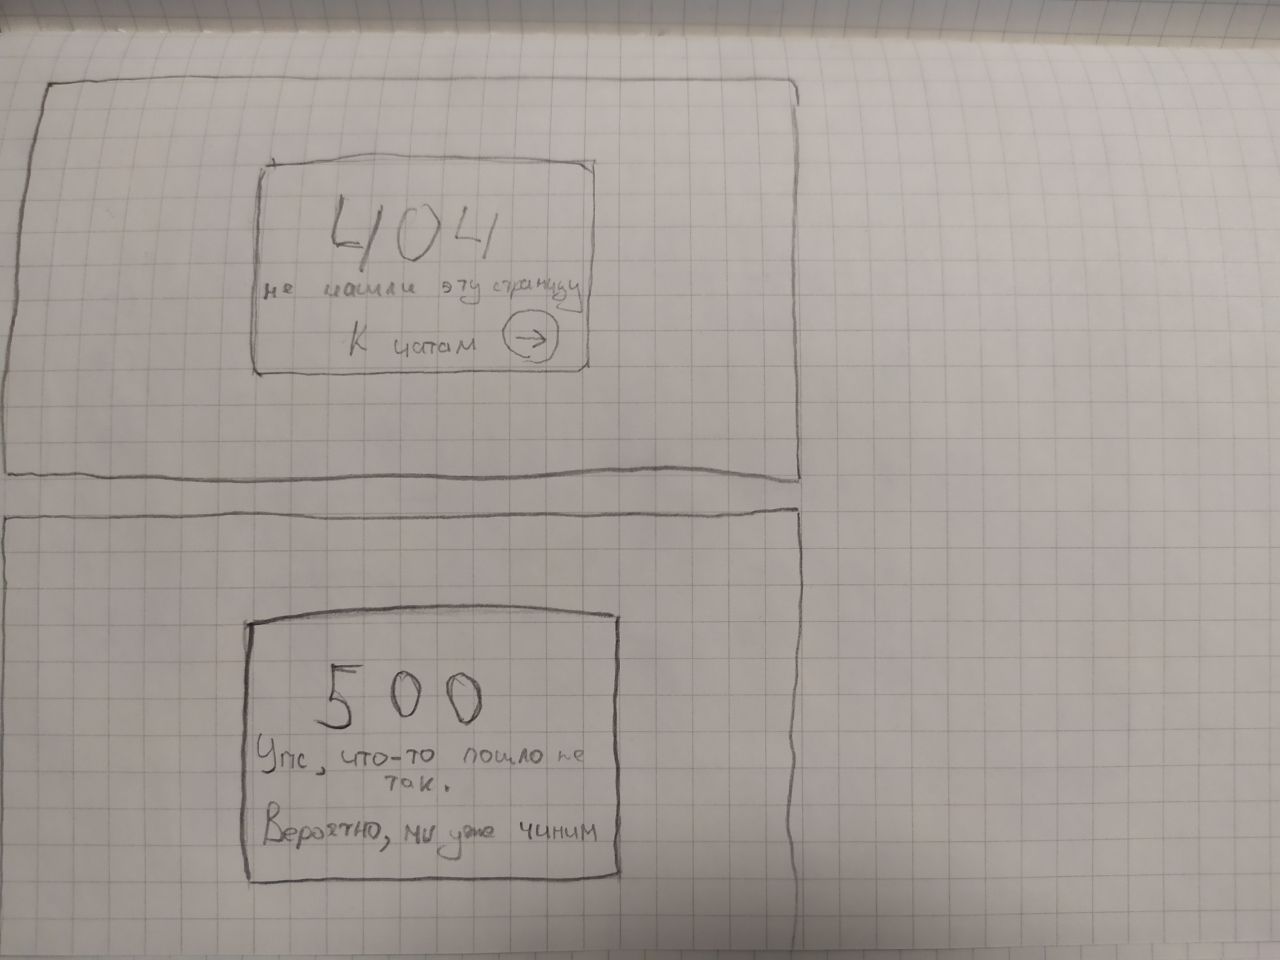 404
не нашли эту страницу
К чатам →
500
Упс, что-то пошло не
так.
Вероятно, мы уже чиним